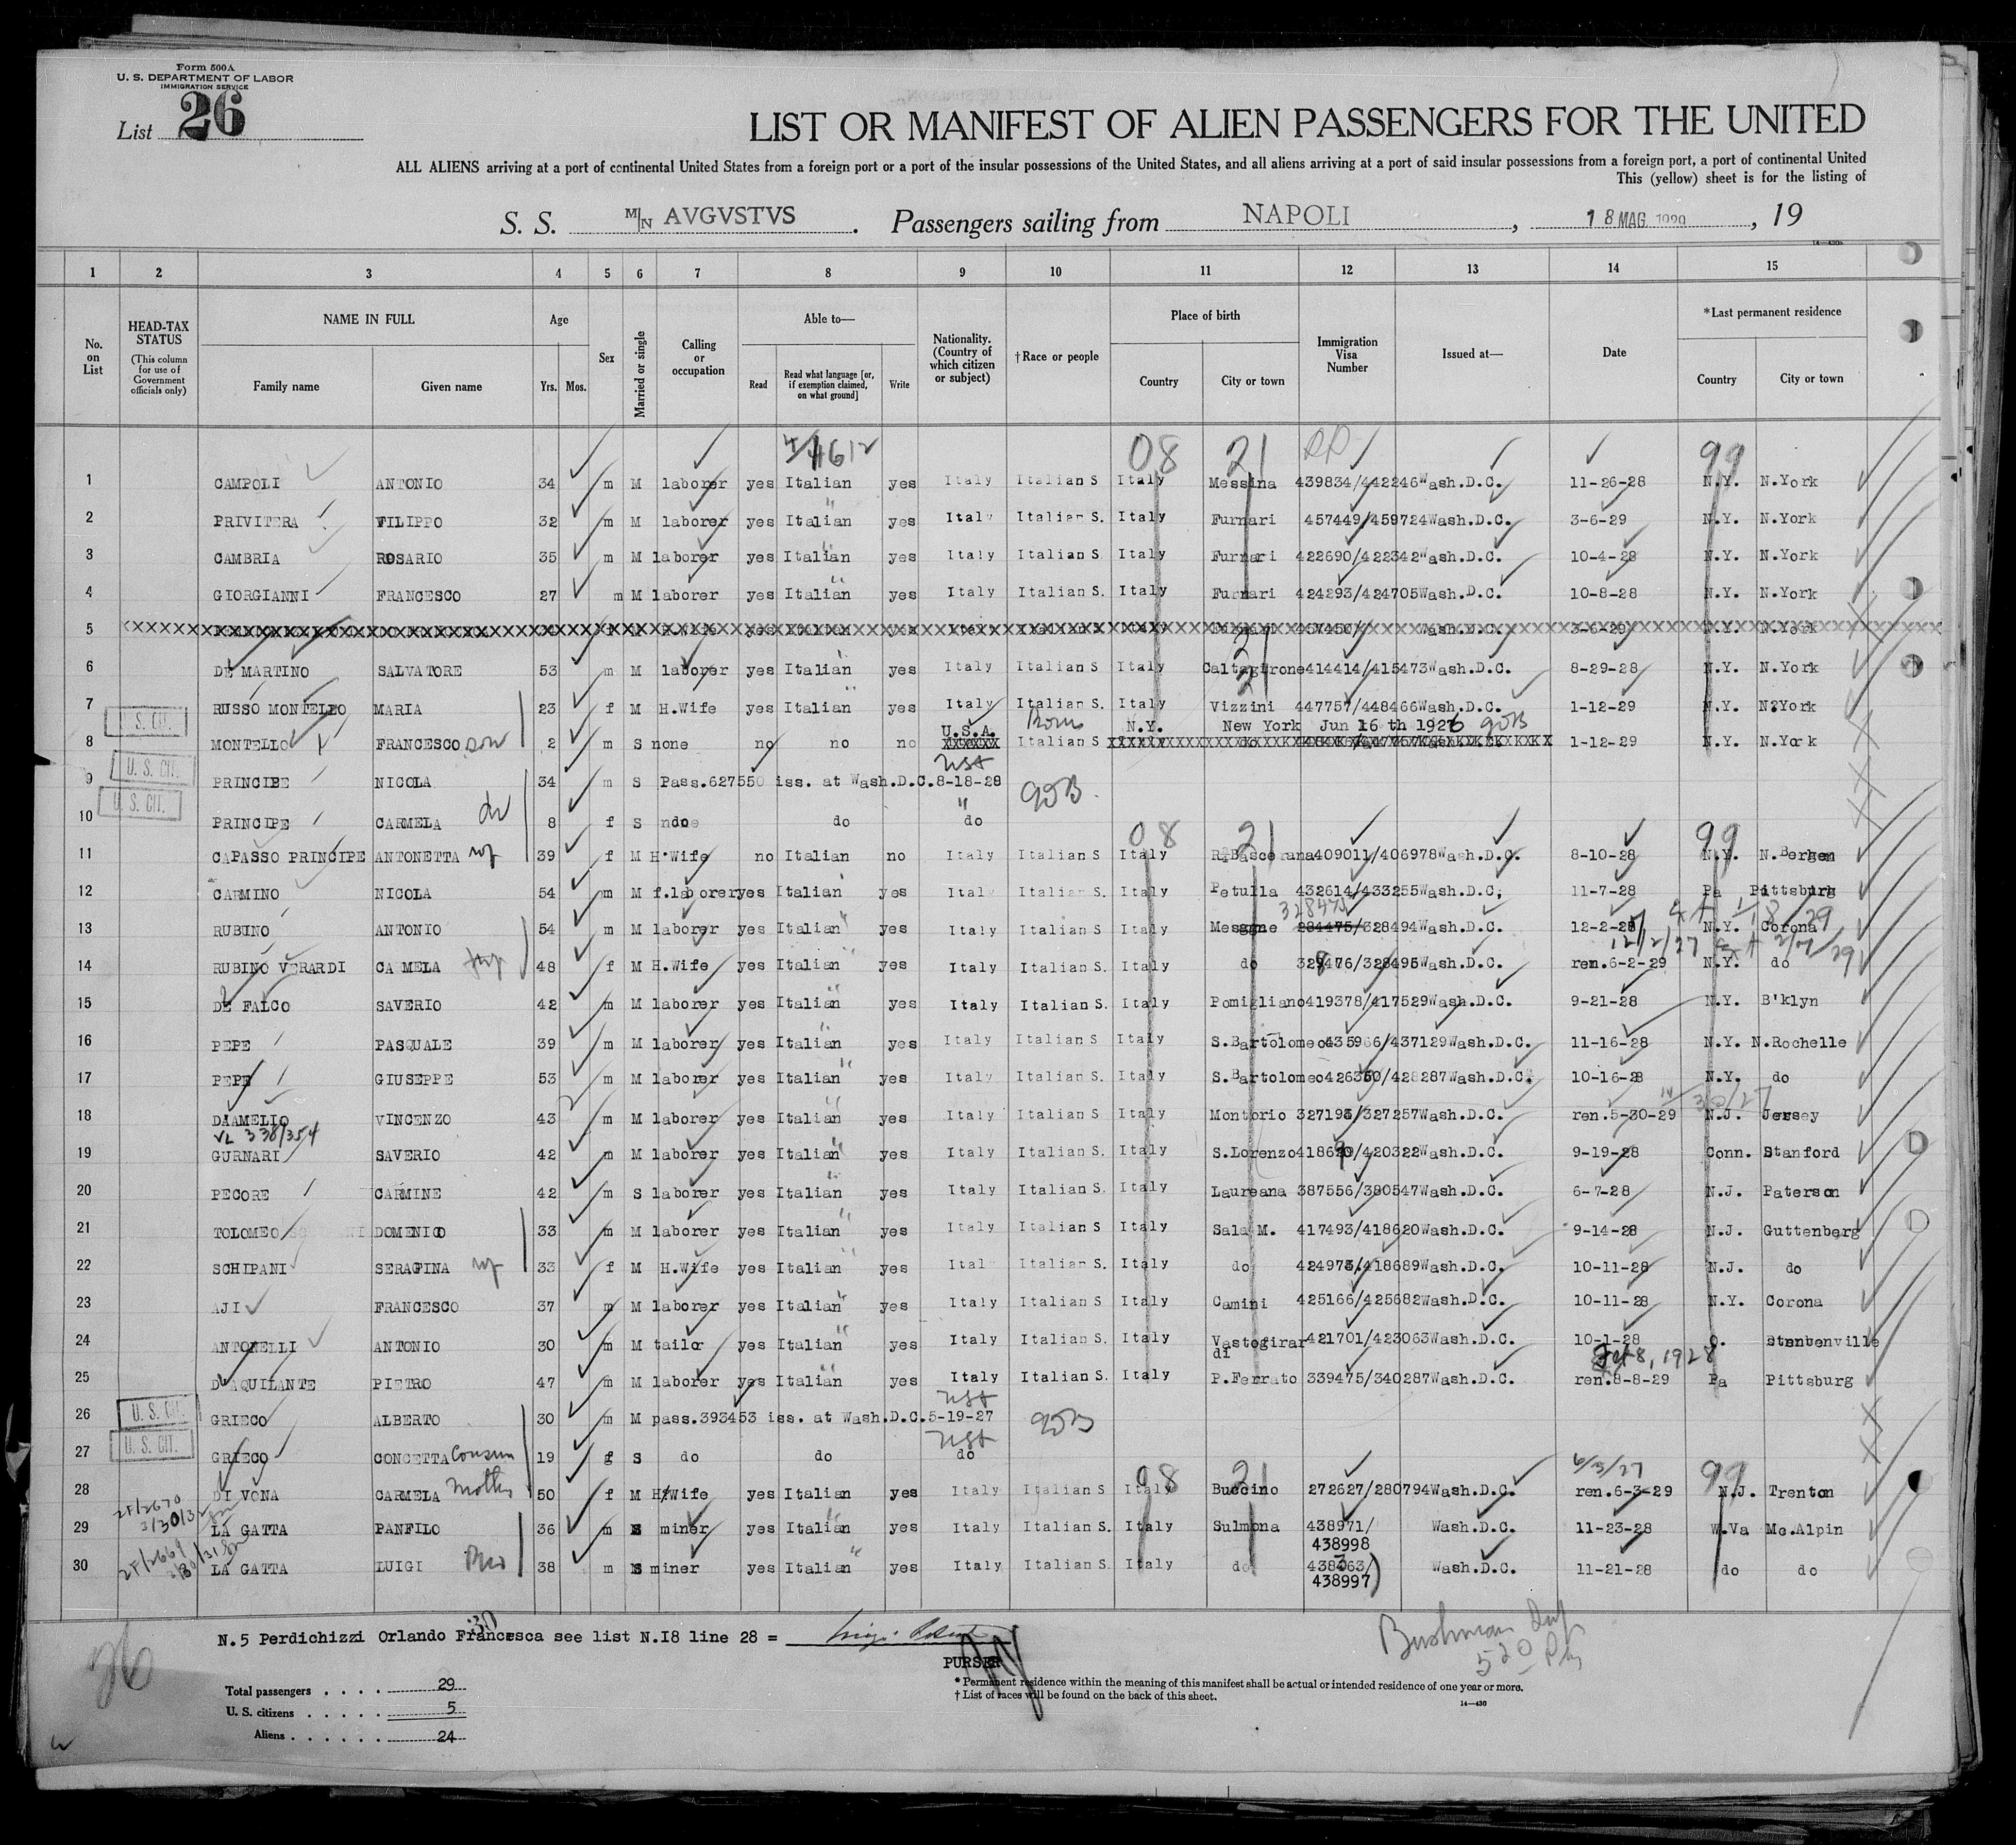 Form 500A
U. S. DEPARTMENT OF LABOR
IMMIGRATION SERVICE
List 26
LIST OR MANIFEST OF ALIEN PASSENGERS FOR THE UNITED
ALL ALIENS arriving at a port of continental United States from a foreign port or a port of the insular possessions of the United States, and all aliens arriving at a port of said insular possessions from a foreign port, a port of continental United
This (yellow) sheet is for the listing of
S. S. M/N AVGVSTVS. Passengers sailing from NAPOLI, 18 MAG. 1929, 19
14—430
1 2 3 4 5 6 7 8 9 10 11 12 13 14 15
No. on List
HEAD-TAX STATUS (This column for use of Government officials only)
NAME IN FULL
Family name Given name
Age
Yrs. Mos.
Sex
Married or single
Calling or occupation
Able to—
Read Read what language [or, if exemption claimed, on what ground] Write
Nationality. (Country of which citizen or subject)
† Race or people
Place of birth
Country City or town
Immigration Visa Number
Issued at—
Date
* Last permanent residence
Country City or town
08 21 99
1 CAMPOLI ANTONIO 34 m M laborer yes Italian yes Italy Italian S Italy Messina 439834/442246 Wash.D.C. 11-26-28 N.Y. N.York
2 PRIVITERA FILIPPO 32 m M laborer yes Italian yes Italy Italian S. Italy Furnari 457449/459724 Wash.D.C. 3-6-29 N.Y. N.York
3 CAMBRIA ROSARIO 35 m M laborer yes Italian yes Italy Italian S. Italy Furnari 422690/422342 Wash.D.C. 10-4-28 N.Y. N.York
4 GIORGIANNI FRANCESCO 27 m M laborer yes Italian yes Italy Italian S. Italy Furnari 424293/424705 Wash.D.C. 10-8-28 N.Y. N.York
5 Italy Wash.D.C. 3-6-29 N.Y. N.York
6 DE MARTINO SALVATORE 53 m M laborer yes Italian yes Italy Italian S Italy Caltagirone 414414/415473 Wash.D.C. 8-29-28 N.Y. N.York
7 RUSSO MONTELLO MARIA 23 f M H.Wife yes Italian yes Italy Italian S. Italy Vizzini 447757/448466 Wash.D.C. 1-12-29 N.Y. N.York
U. S. CIT. U.S.A. Born N.Y. New York Jun 16 th 1926
8 MONTELLO FRANCESCO son 2 m S none no no no Italian S 1-12-29 N.Y. N.York
U. S. CIT. USA
9 PRINCIPE NICOLA 34 m S Pass.627550 iss. at Wash.D.C.8-18-28
U. S. CIT.
10 PRINCIPE CARMELA 8 f S do do
08 21 99
11 CAPASSO PRINCIPE ANTONETTA wf 39 f M H.Wife no Italian no Italy Italian S Italy 409011/406978 Wash.D.C. 8-10-28 N.Y. N.Bergen
12 CARMINO NICOLA 54 m M f.laborer yes Italian yes Italy Italian S. Italy Petulla 432614/433255 Wash.D.C. 11-7-28 Pa Pittsburg
13 RUBINO ANTONIO 54 m M laborer yes Italian yes Italy Italian S. Italy 284475/328494 Wash.D.C. N.Y. Corona
14 RUBINO VERARDI CARMELA 48 f M H.Wife yes Italian yes Italy Italian S. Italy do Wash.D.C. ren.6-2-29 N.Y. do
15 DE FALCO SAVERIO 42 m M laborer yes Italian yes Italy Italian S. Italy Pomigliano 419378/417529 Wash.D.C. 9-21-28 N.Y. B'klyn
16 PEPE PASQUALE 39 m M laborer yes Italian yes Italy Italian S Italy S.Bartolomeo 435966/437129 Wash.D.C. 11-16-28 N.Y. N.Rochelle
17 PEPE GIUSEPPE 53 m M laborer yes Italian yes Italy Italian S. Italy S.Bartolomeo Wash.D.C. 10-16-28 N.Y. do
18 D'AMELIO VINCENZO 43 m M laborer yes Italian yes Italy Italian S. Italy Montorio 327193/327257 Wash.D.C. ren.5-30-29 N.J. Jersey
VL 338/354
19 GURNARI SAVERIO 42 m M laborer yes Italian yes Italy Italian S. Italy S.Lorenzo Wash.D.C. 9-19-28 Conn. Stanford
20 PECORE CARMINE 42 m S laborer yes Italian yes Italy Italian S. Italy Laureana 387556/380547 Wash.D.C. 6-7-28 N.J. Paterson
21 TOLOMEO DOMENICO 33 m M laborer yes Italian yes Italy Italian S Italy Sala M. 417493/418620 Wash.D.C. 9-14-28 N.J. Guttenberg
22 SCHIPANI SERAFINA wf 33 f M H.Wife yes Italian yes Italian S. Italy do Wash.D.C. 10-11-28 N.J. do
23 AJI FRANCESCO 37 m M laborer yes Italian yes Italy Italian S Italy Camini 425166/425682 Wash.D.C. 10-11-28 N.Y. Corona
24 ANTONELLI ANTONIO 30 m M tailor yes Italian yes Italy Italian S. Italy Vastogirardi 421701/423063 Wash.D.C. 10-1-28 O. Steubenville
25 D'AQUILANTE PIETRO 47 m M laborer yes Italian yes Italy Italian S. Italy P.Ferrato 339475/340287 Wash.D.C. ren.8-8-29 Pa Pittsburg
U. S. CIT. USA
26 GRIECO ALBERTO 30 m M pass.393453 iss. at Wash.D.C.5-19-27
U. S. CIT. USA
27 GRIECO CONCETTA 19 f S do do do
08 21 6/3/27 99
28 DI VONA CARMELA Mother 50 f M H/Wife yes Italian yes Italy Italian S Italy Buccino 272627/280794 Wash.D.C. ren.6-3-29 N.J. Trenton
29 LA GATTA PANFILO 36 m S miner yes Italian yes Italy Italian S. Italy Sulmona 438971/ 438998 Wash.D.C. 11-23-28 W.Va Mc.Alpin
30 LA GATTA LUIGI 38 m S miner yes Italian yes Italy Italian S. Italy do 438997 Wash.D.C. 11-21-28 do do
N.5 Perdichizzi Orlando Francesca see list N.I8 line 28 =
PURSER
26
Total passengers . . . . 29
U. S. citizens . . . . . 5
Aliens . . . . . . 24
* Permanent residence within the meaning of this manifest shall be actual or intended residence of one year or more.
† List of races will be found on the back of this sheet.
14—430